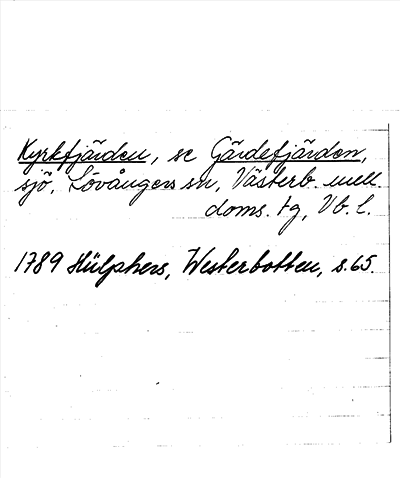 Kyrkfjärden, se Gärdefjärden,
sjö, Lövångers sn, Västerb. mell.
doms. tg, Vb. l.
1789 Hülphers, Westerbotten, s. 65.